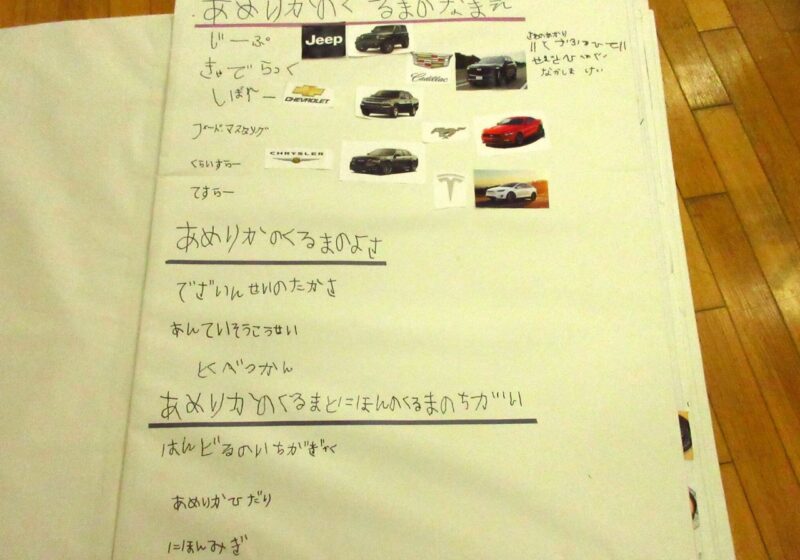 あめりかのくるまのなまえ
じーぷ
Jeep
きゃでらっく
Cadillac
しぼれー
CHEVROLET
フォードマスタング
くらいすらー
CHRYSLER
てすらー
なかしま けい
あめりかのくるまのよさ
でざいんせいのたかさ
あんていそうこうせい
とくべつかん
あめりかのくるまとにほんのくるまのちがい
はんどるのいちがぎゃく
あめりかひだり
にほんみぎ